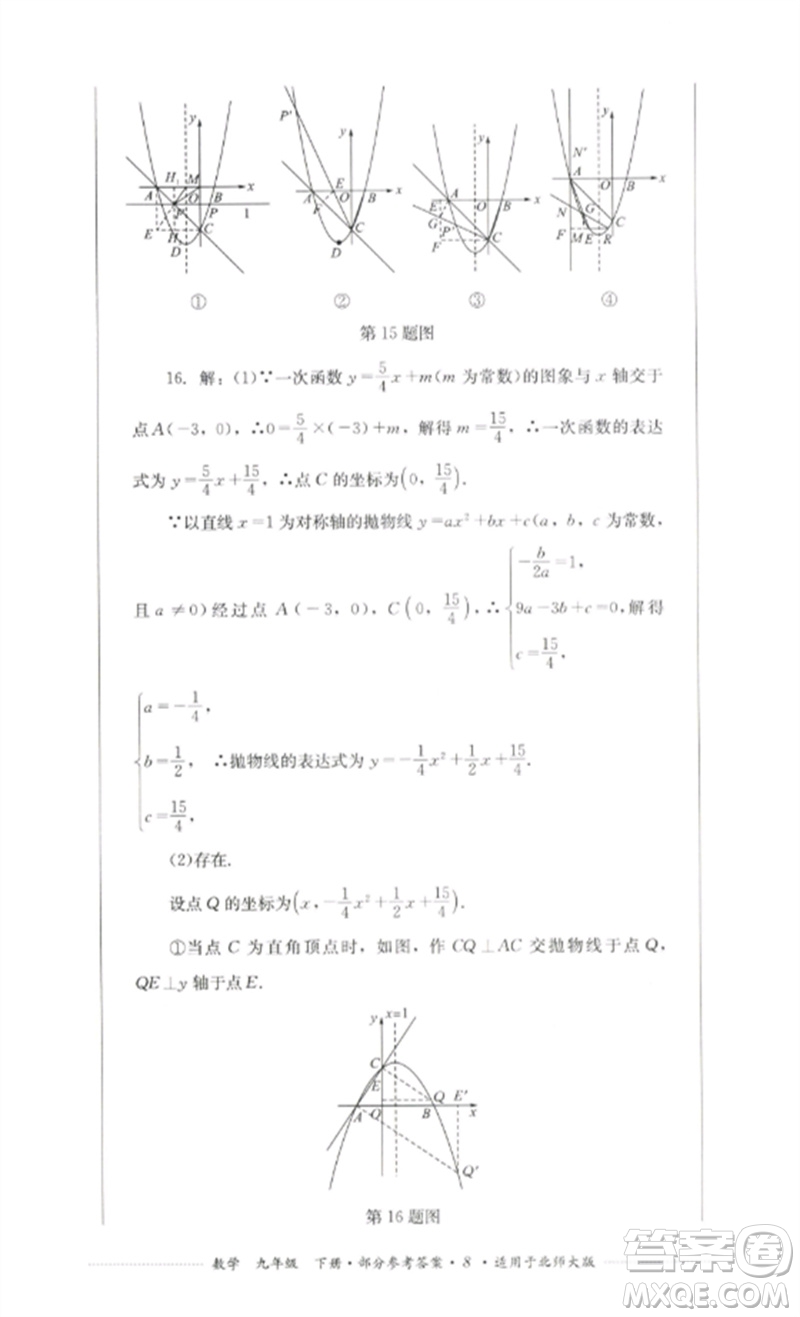 ① ② ③ ④
第15题图
16. 解：(1)∵一次函数 y=5/4x+m(m 为常数)的图象与 x 轴交于
点A(-3，0)，∴0=5/4×(-3)+m，解得 m=15/4，∴一次函数的表达
式为 y=5/4x+15/4，∴点 C 的坐标为(0，15/4).
∵以直线 x=1 为对称轴的抛物线 y=ax²+bx+c(a，b，c 为常数，
且 a≠0)经过点 A(-3，0)，C(0，15/4)，∴{-b/2a=1，9a-3b+c=0，c=15/4，解得
{a=-1/4，b=1/2，c=15/4，∴抛物线的表达式为 y=-1/4x²+1/2x+15/4.
(2)存在.
设点 Q 的坐标为(x，-1/4x²+1/2x+15/4).
①当点 C 为直角顶点时，如图，作 CQ⊥AC 交抛物线于点 Q，
QE⊥y 轴于点 E.
y x=1
C
E
Q E′
A O B x
Q′
第16题图
数学 九年级 下册·部分参考答案·8·适用于北师大版
答案圈
MXQE.COM